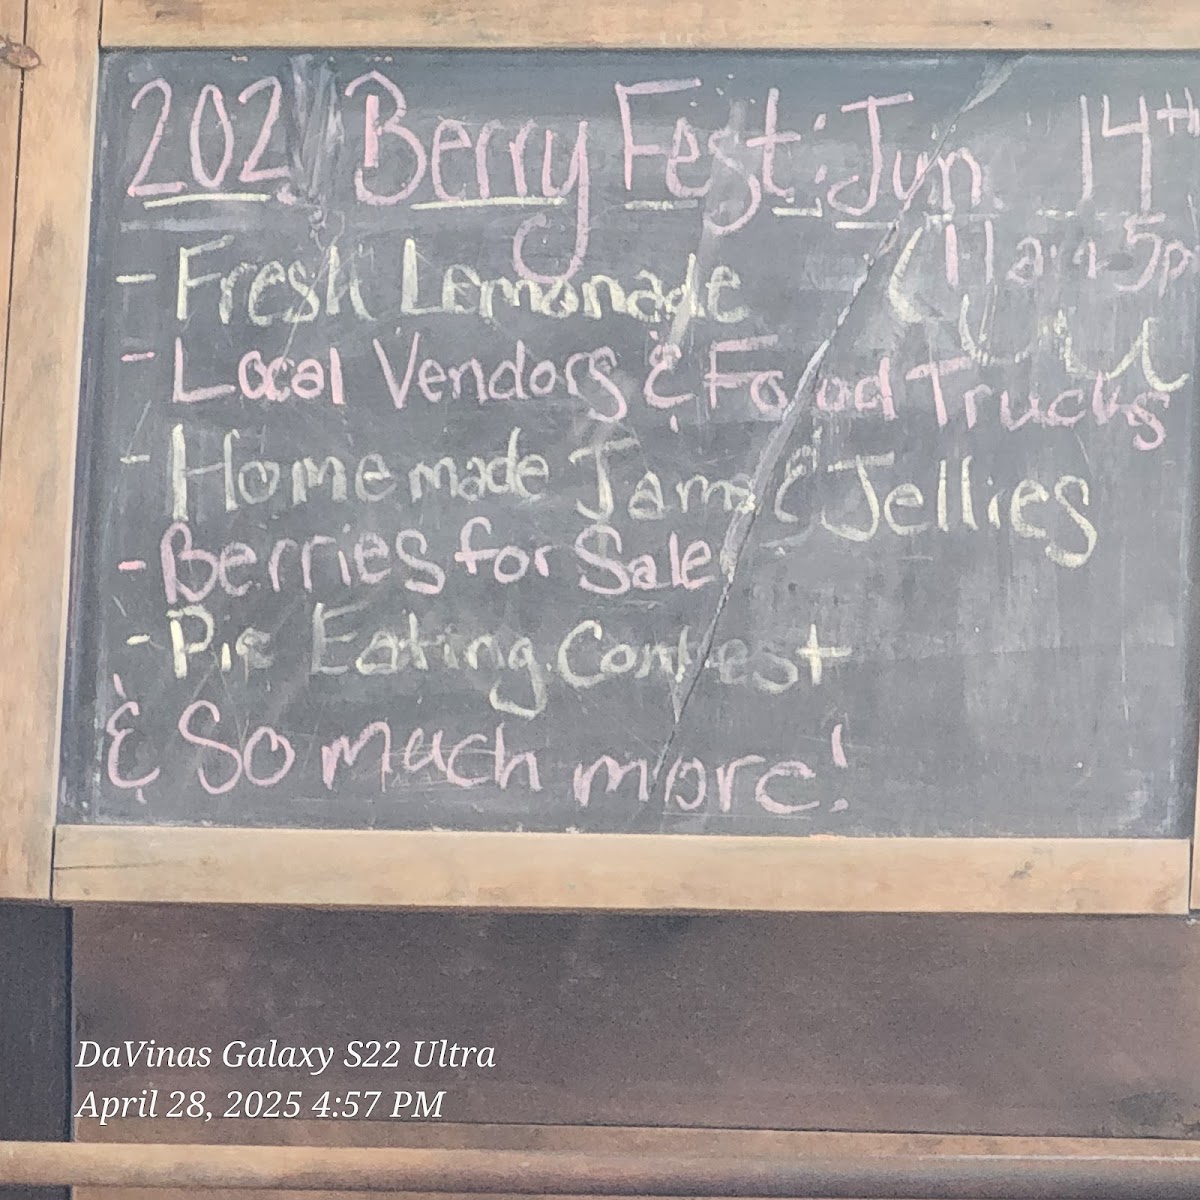 202 Berry Fest: Jun 14th
(11am-5p
- Fresh Lemonade
- Local Vendors & Food Trucks
- Homemade Jams & Jellies
- Berries for Sale
- Pie Eating Contest
& So much more!
DaVinas Galaxy S22 Ultra
April 28, 2025 4:57 PM